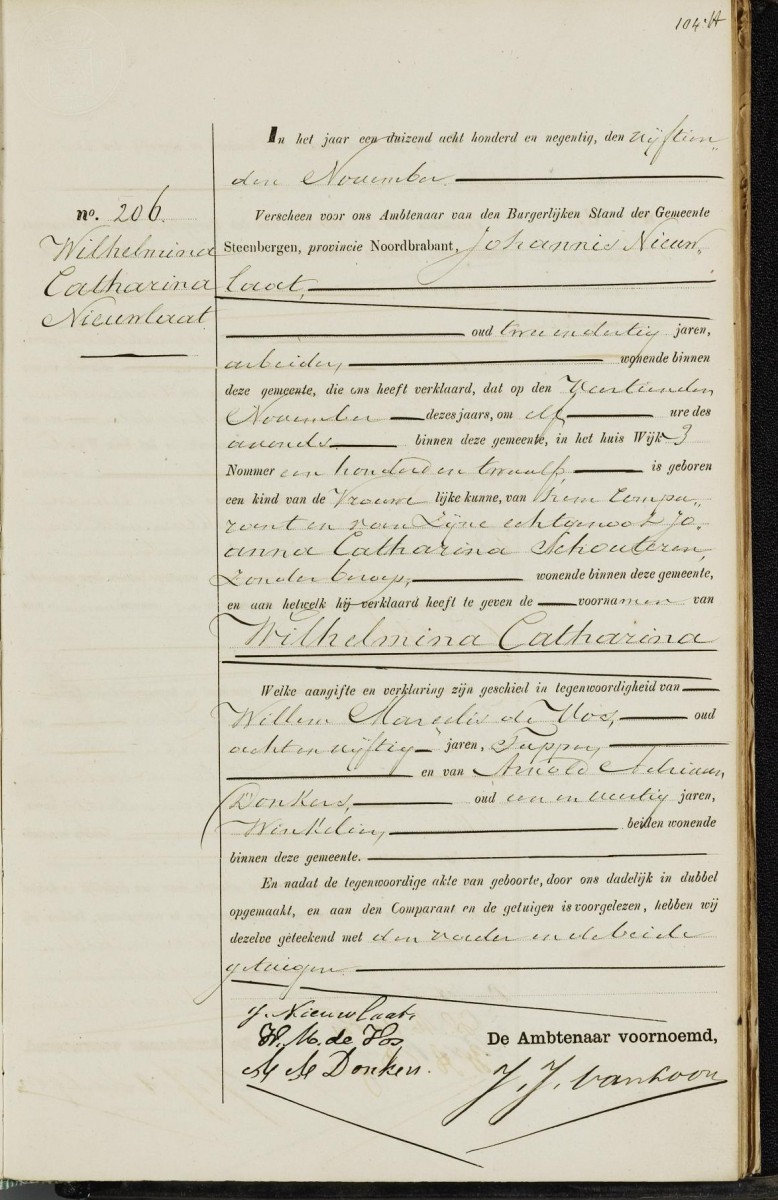 104 H
In het jaar een duizend acht honderd en negentig, den vijftien
den November.
no. 206.
Wilhelmina
Catharina
Nieuwlaat
Verscheen voor ons Ambtenaar van den Burgerlijken Stand der Gemeente
Steenbergen, provincie Noordbrabant, Johannis Nieuw-
laat,
oud twee en dertig jaren,
arbeider, wonende binnen
deze gemeente, die ons heeft verklaard, dat op den Veertienden
November dezes jaars, om elf ure des
avonds binnen deze gemeente, in het huis Wijk 3
Nommer een honderd en twaalf is geboren
een kind van de Vrouwe lijke kunne, van hem Compa-
rant en van Zijne echtgenoot Jo-
anna Catharina Schouteren,
zonder beroep, wonende binnen deze gemeente,
en aan hetwelk hij verklaard heeft te geven de voornamen van
Wilhelmina Catharina
Welke aangifte en verklaring zijn geschied in tegenwoordigheid van
Willem Marcelis de Vos, oud
acht en vijftig jaren, Tapper,
en van Arnold Adriaan
Donkers, oud een en veertig jaren,
Winkelier, beiden wonende
binnen deze gemeente.
En nadat de tegenwoordige akte van geboorte, door ons dadelijk in dubbel
opgemaakt, en aan den Comparant en de getuigen is voorgelezen, hebben wij
dezelve geteekend met den vader en de beide
getuigen.
J. Nieuwlaat,
W. M. de Vos
A A Donkers.
De Ambtenaar voornoemd,
J. J. van Loon